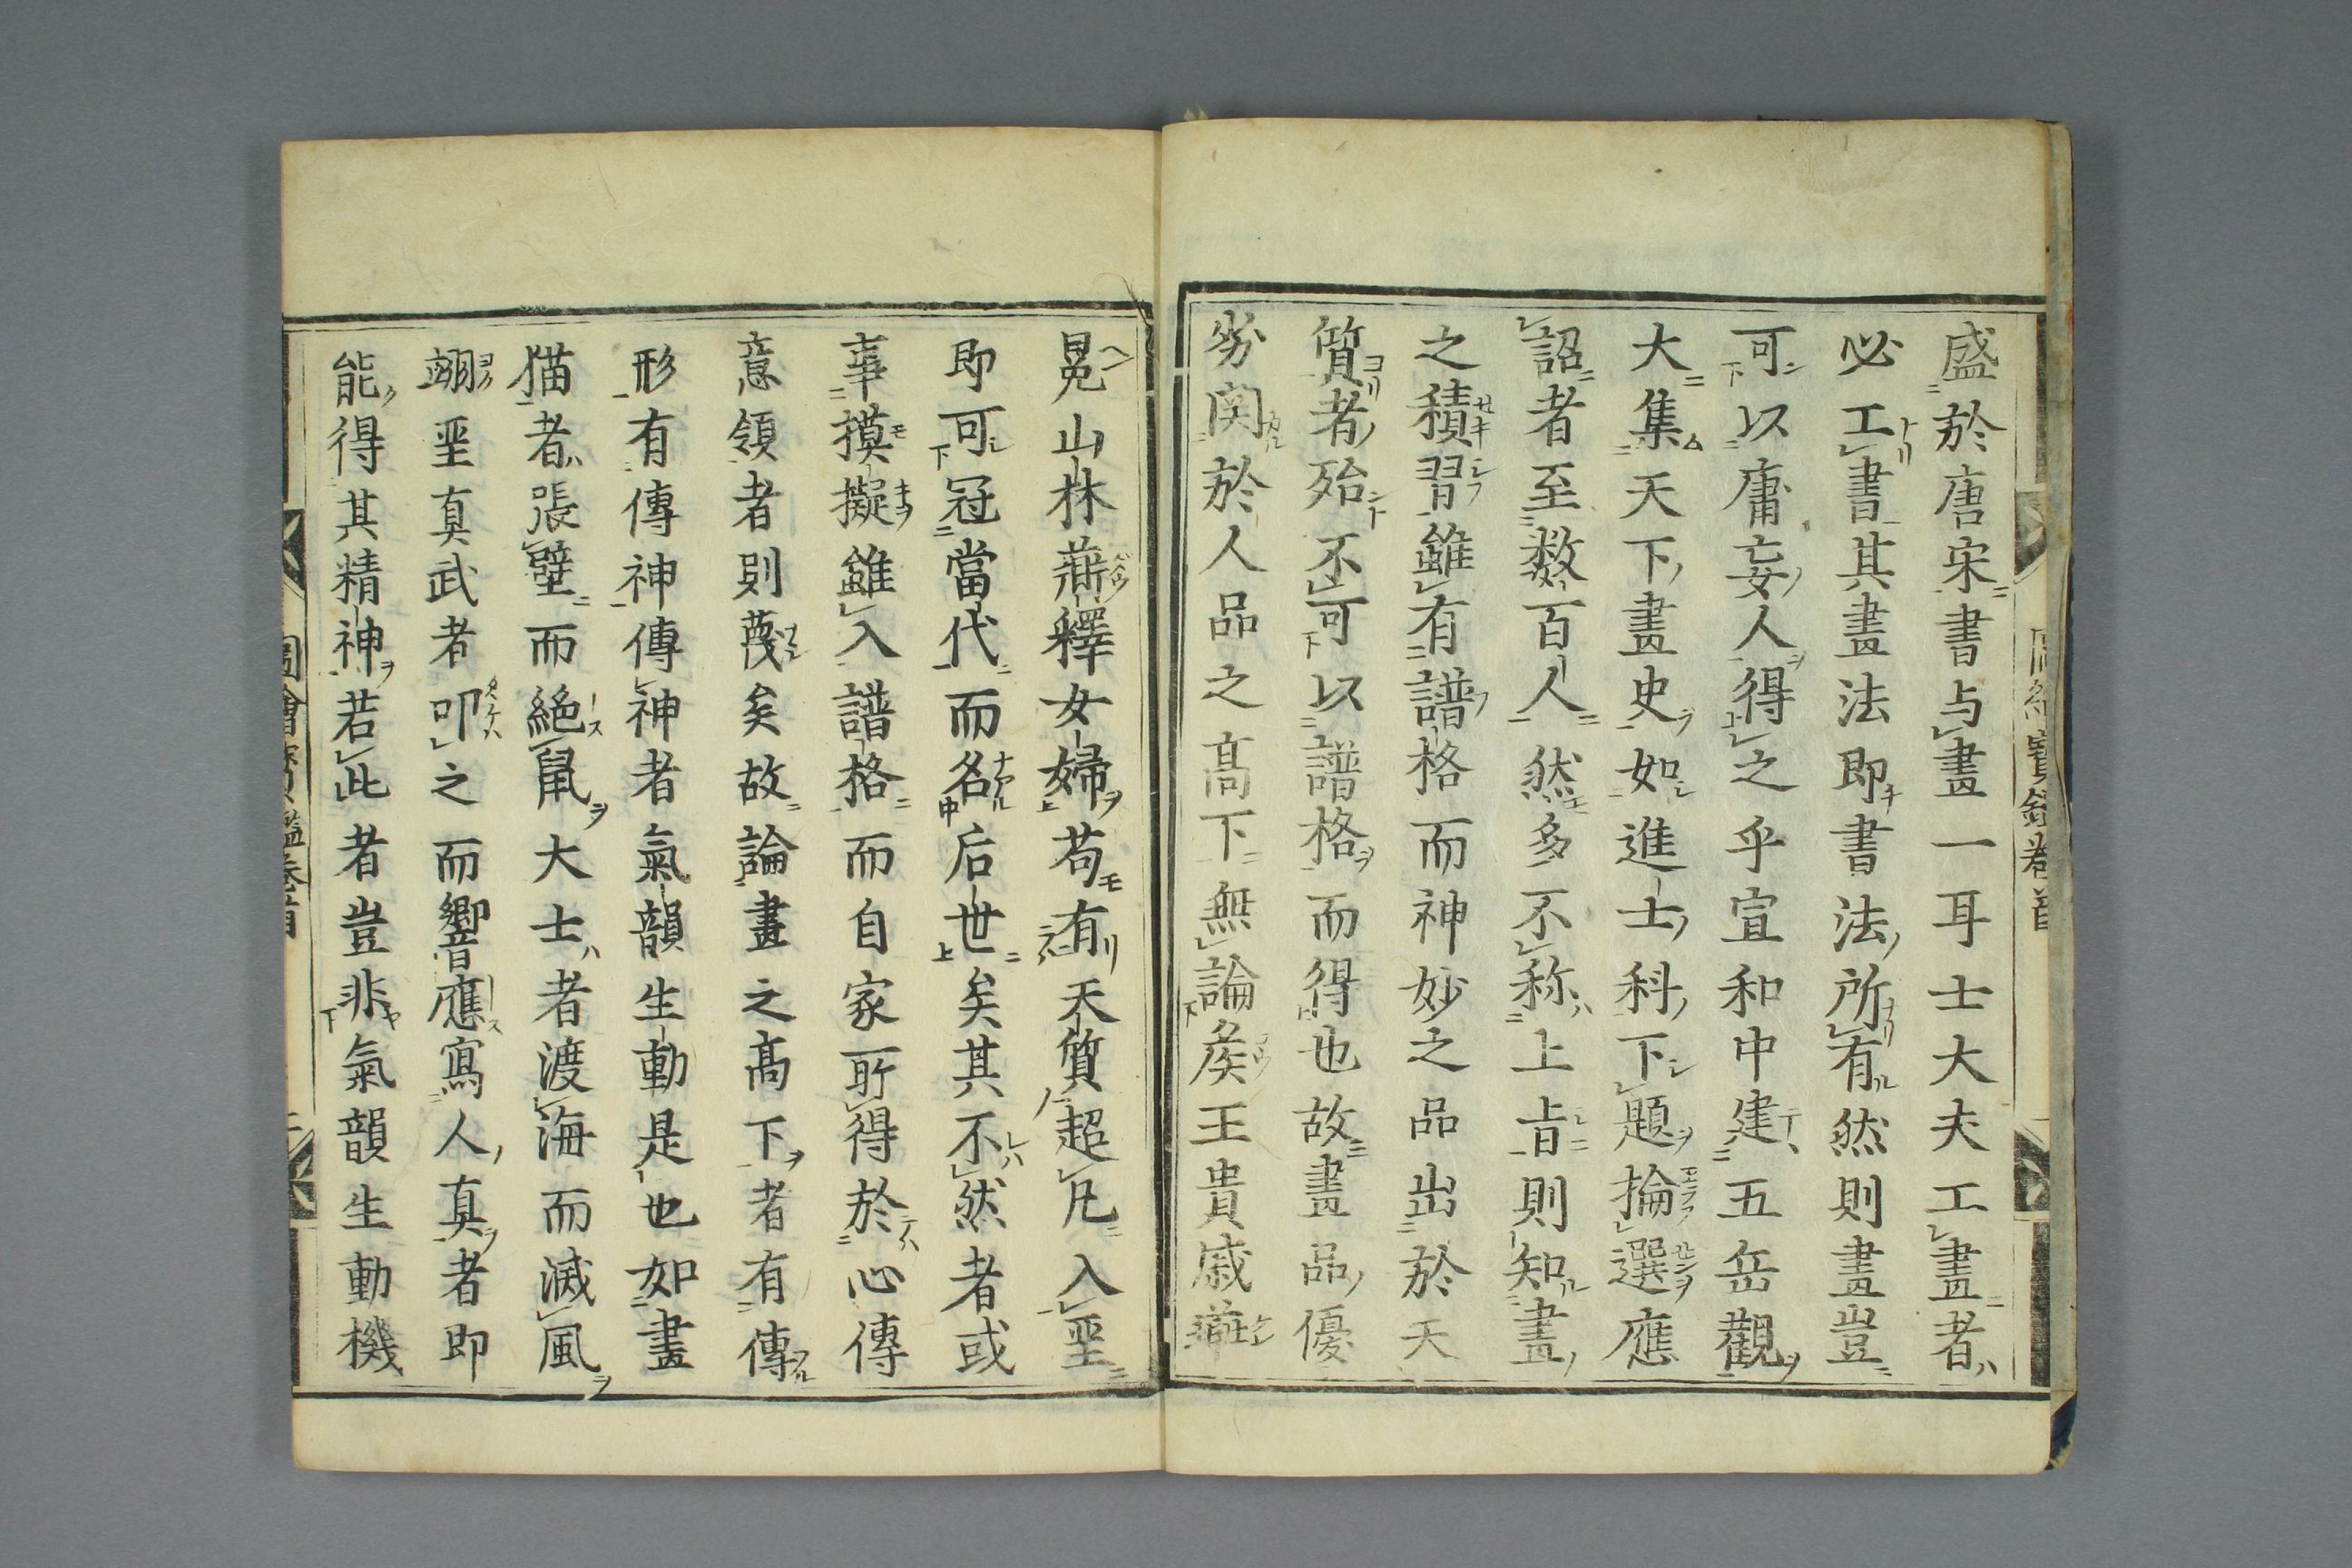 盛於唐宋書与畫一耳士大夫工畫者
必工書其畫法即書法所有然則畫豈
可以庸妄人得之乎宣和中建五岳觀
大集天下畫史如進士科下題掄選應
詔者至数百人然多不称上㫖則知畫
之積習雖有譜格而神妙之品出於天
質者殆不可以譜格而得也故畫品優
劣関於人品之髙下無論侯王貴戚軒
冕山林䔥釋女婦苟有天質超凡入聖
即可冠當代而名后世矣其不然者或
事摸擬雖入譜格而自家所得於心傳
意領者則蔑矣故論畫之髙下者有傳
形有傳神傳神者氣韻生動是也如畫
猫者張壁而絕鼠大士者渡海而滅風
翊聖真武者叩之而響應寫人真者即
能得其精神若此者豈非氣韻生動機
圖繪寳鑑卷首